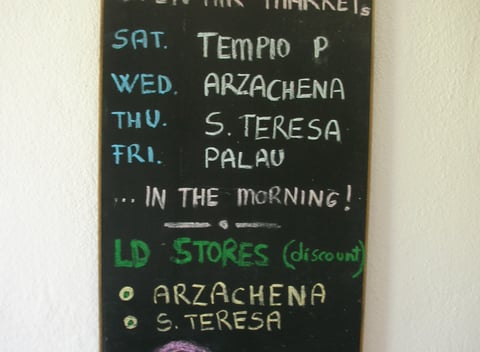 MARKETs
SAT. TEMPIO P
WED. ARZACHENA
THU. S. TERESA
FRI. PALAU
... IN THE MORNING!
LD STORES (discount)
ARZACHENA
S. TERESA